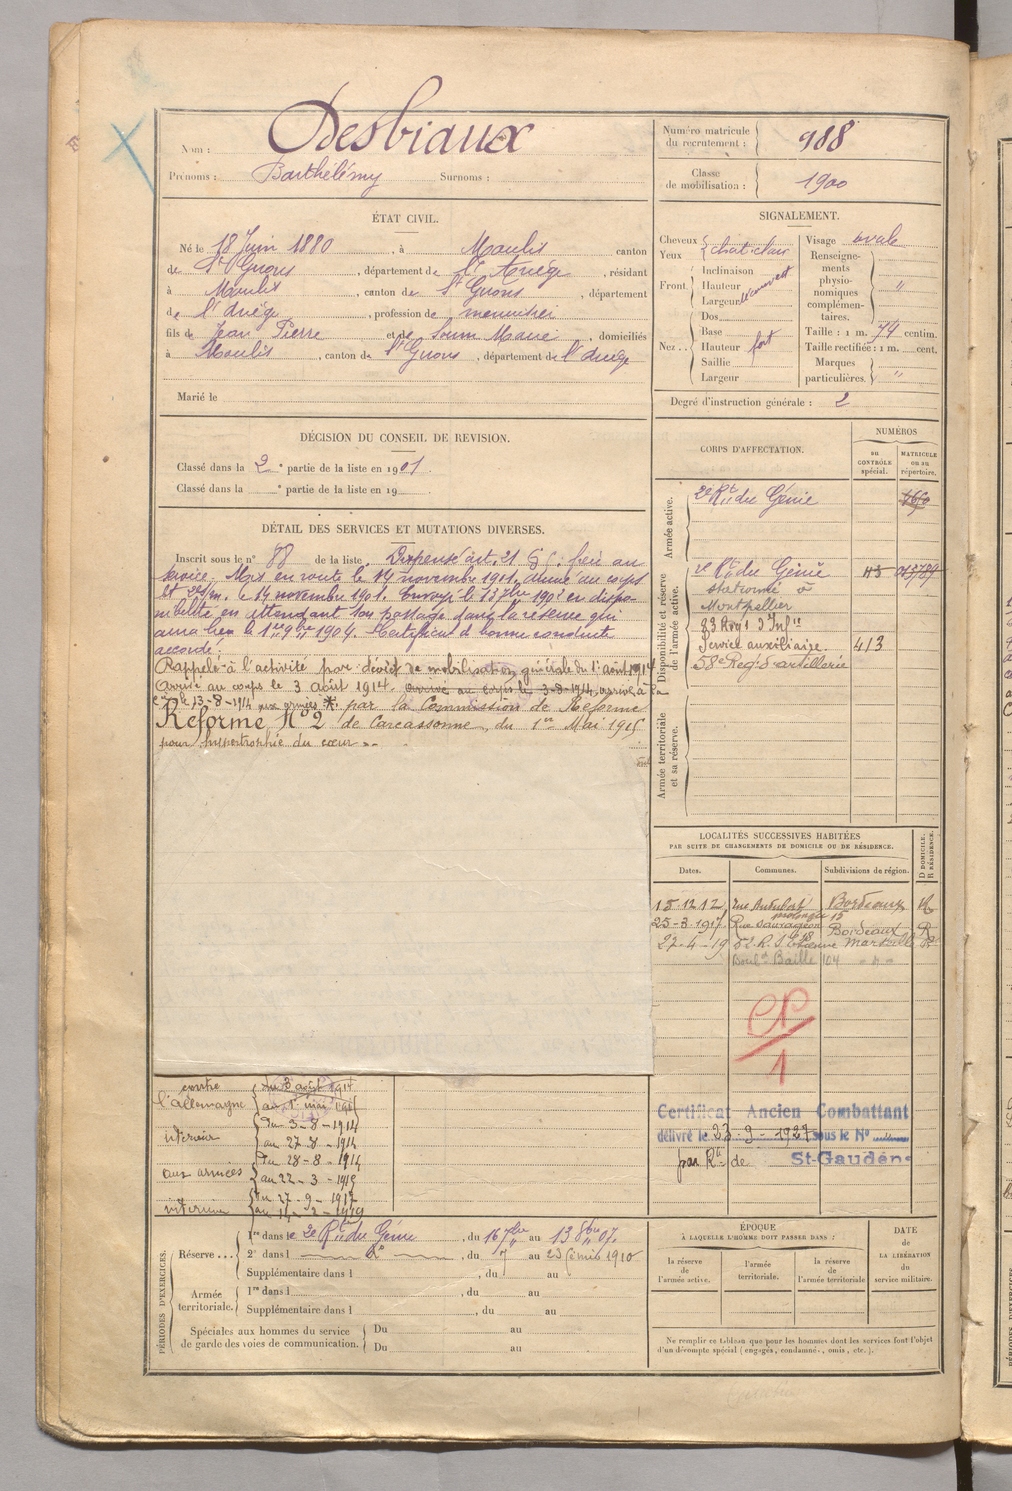 Nom : Desbiaux
Prénoms : Barthélémy Surnoms :
Numéro matricule du recrutement : 988
Classe de mobilisation : 1900
ÉTAT CIVIL.
Né le 18 Juin 1880, à Moulis canton
de St Girons, département de l'Ariège, résidant
à Moulis, canton de St Girons, département
de l'Ariège, profession de menuisier
fils de Jean Pierre et de Soum Marie, domiciliés
à Moulis, canton de St Girons, département de l'Ariège
Marié le
SIGNALEMENT.
Cheveux
Yeux
chat. clair
Front.
Inclinaison
Hauteur
Largeur
Nez..
Dos
Base
Hauteur fort
Saillie
Largeur
Visage ovale
Renseigne-
ments
physio-
nomiques
complémen-
taires.
"
Taille : 1 m. 74 centim.
Taille rectifiée : 1 m. cent.
Marques
particulières. "
Degré d'instruction générale : 2
DÉCISION DU CONSEIL DE REVISION.
Classé dans la 2e partie de la liste en 1901.
Classé dans la e partie de la liste en 19
DÉTAIL DES SERVICES ET MUTATIONS DIVERSES.
Inscrit sous le n° 88 de la liste. Dispensé art. 21 frère au
service. Mis en route le 14 novembre 1901. Arrivé au corps
et le 14 novembre 1901. Envoyé le en dispo-
nibilité en attendant son passage dans la réserve qui
aura lieu le 1er 9bre 1904. Certificat de bonne conduite
accordé.
Rappelé à l'activité par décret de mobilisation générale du 1er août 1914
Arrivé au corps le 3 août 1914. arrivé au corps le 3-8-1914, arrivé à la
le 13-8-1914 aux armées par la Commission de Réforme
Réformé N° 2 de Carcassonne, du 1er Mai 1915
pour hypertrophie du cœur
CORPS D'AFFECTATION.
NUMÉROS
au
CONTRÔLE
spécial.
MATRICULE
ou au
répertoire.
Armée active.
2e Rt du Génie
Disponibilité et réserve de l'armée active.
2e Rt du Génie 43
stationné à
Montpellier
83 Rgt d'Infie
Service auxiliaire. 413
58e Regt d'artillerie
Armée territoriale et sa réserve.
LOCALITÉS SUCCESSIVES HABITÉES
PAR SUITE DE CHANGEMENTS DE DOMICILE OU DE RÉSIDENCE.
Dates. Communes. Subdivisions de région. D DOMICILE. R RÉSIDENCE.
15.12.12 Bordeaux R
25-3-1917 Rue Sauvageon prolongée 15 Bordeaux R
27-4-19 R. St Etienne Marseille
Bould Baille 104 " " "
CP/1
Certificat Ancien Combattant
délivré le 23-9-1927 sous le N°
par Rt de St-Gaudens
contre l'allemagne du 3 août 1914
au 1er mai 1915
intérieur du 3-8-1914
au 27-8-1914
aux armées du 28-8-1914
au 22-3-1915
intérieur du 27-9-1917
au 14-2-1919
PÉRIODES D'EXERCICES.
Réserve ... 1re dans le 2e Rt du Génie, du 16 7bre au 13 8bre 07.
2e dans l do, du 7 au 23 février 1910
Supplémentaire dans l , du au
Armée territoriale. 1re dans l , du au
Supplémentaire dans l , du au
Spéciales aux hommes du service
de garde des voies de communication.
Du au
Du au
ÉPOQUE
À LAQUELLE L'HOMME DOIT PASSER DANS :
la réserve
de
l'armée active.
l'armée
territoriale.
la réserve
de
l'armée territoriale
DATE
de
LA LIBÉRATION
du
service militaire.
Ne remplir ce tableau que pour les hommes dont les services font l'objet
d'un décompte spécial (engagés, condamnés, omis, etc.).